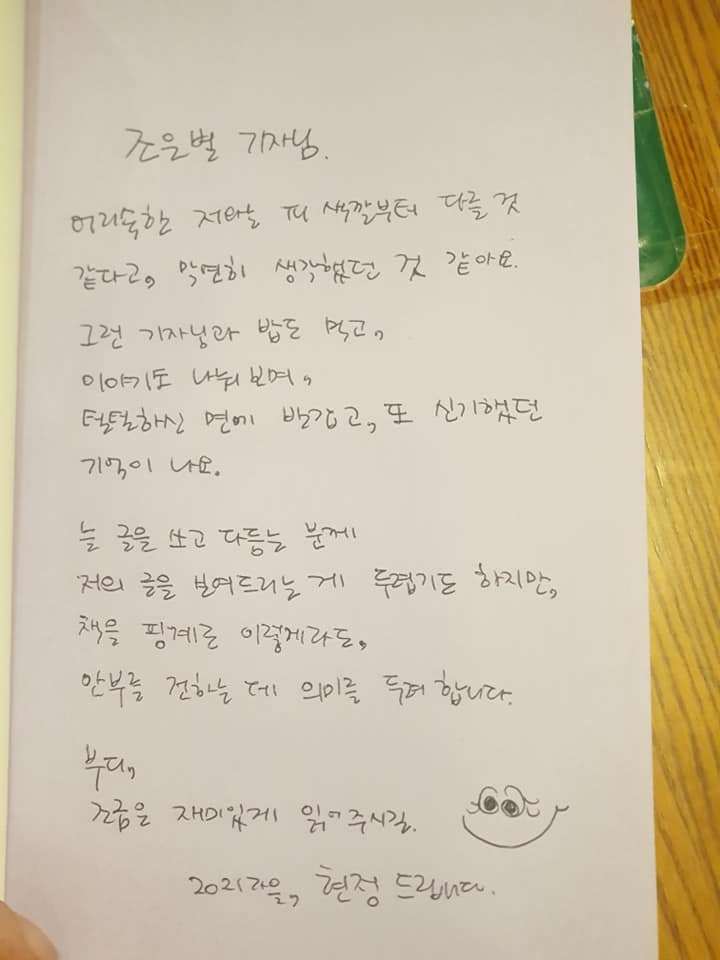 조은별 기자님.
어리숙한 저와는 피 색깔부터 다를 것
같다고, 막연히 생각했던 것 같아요.
그런 기자님과 밥도 먹고,
이야기도 나눠보며,
털털하신 면에 반갑고, 또 신기했던
기억이 나요.
늘 글을 쓰고 다듬는 분께
저의 글을 보여드리는 게 두렵기도 하지만,
책을 핑계로 이렇게라도,
안부를 전하는 데 의미를 두려 합니다.
부디,
조금은 재미있게 읽어주시길.
2021 가을, 현정 드립니다.